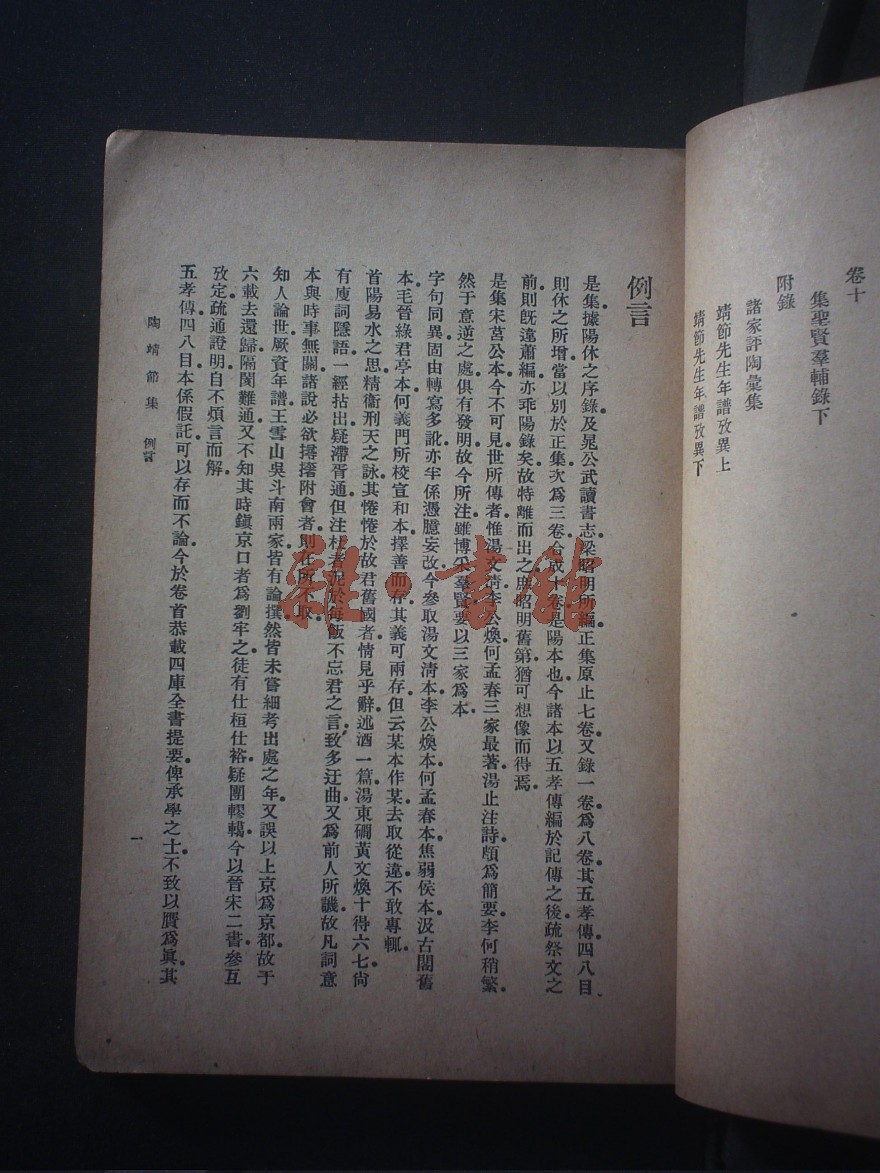 卷十
集聖賢羣輔錄下
附錄
諸家評陶彙集
靖節先生年譜攷異上
靖節先生年譜攷異下
例言
是集據陽休之序錄及晁公武讀書志梁昭明所編正集原止七卷又錄一卷爲八卷其五孝傳四八目
則休之所增當以別於正集次爲三卷合成十卷是陽本也今諸本以五孝傳編於記傳之後疏祭文之
前則旣違蕭編亦乖陽錄矣故特離而出之庶昭明舊第猶可想像而得焉
是集宋莒公本今不可見世所傳者惟湯文淸李公煥何孟春三家最著湯止注詩頗爲簡要李何稍繁
然于意逆之處俱有發明故今所注雖博采羣賢要以三家爲本
字句同異固由轉寫多訛亦半係憑臆妄改今參取湯文淸本李公煥本何孟春本焦弱侯本汲古閣舊
本毛晉綠君亭本何義門所校宣和本擇善而存其義可兩存但云某本作某去取從違不敢專輒
首陽易水之思精衞刑天之詠其惓惓於故君舊國者情見乎辭述酒一篇湯東磵黃文煥十得六七尙
有廋詞隱語一經拈出疑滯胥通但注杜者況於每飯不忘君之言致多迂曲又爲前人所譏故凡詞意
本與時事無關諸說必欲撏撦附會者則在所不取
知人論世厥資年譜王雪山吳斗南兩家皆有論撰然皆未嘗細考出處之年又誤以上京爲京都故于
六載去還歸隔閡難通又不知其時鎭京口者爲劉牢之徒有仕桓仕裕疑團轇轕今以晉宋二書參互
攷定疏通證明自不煩言而解
五孝傳四八目本係假託可以存而不論今於卷首恭載四庫全書提要俾承學之士不致以贋爲眞其
陶靖節集 例言
一
雜·書館